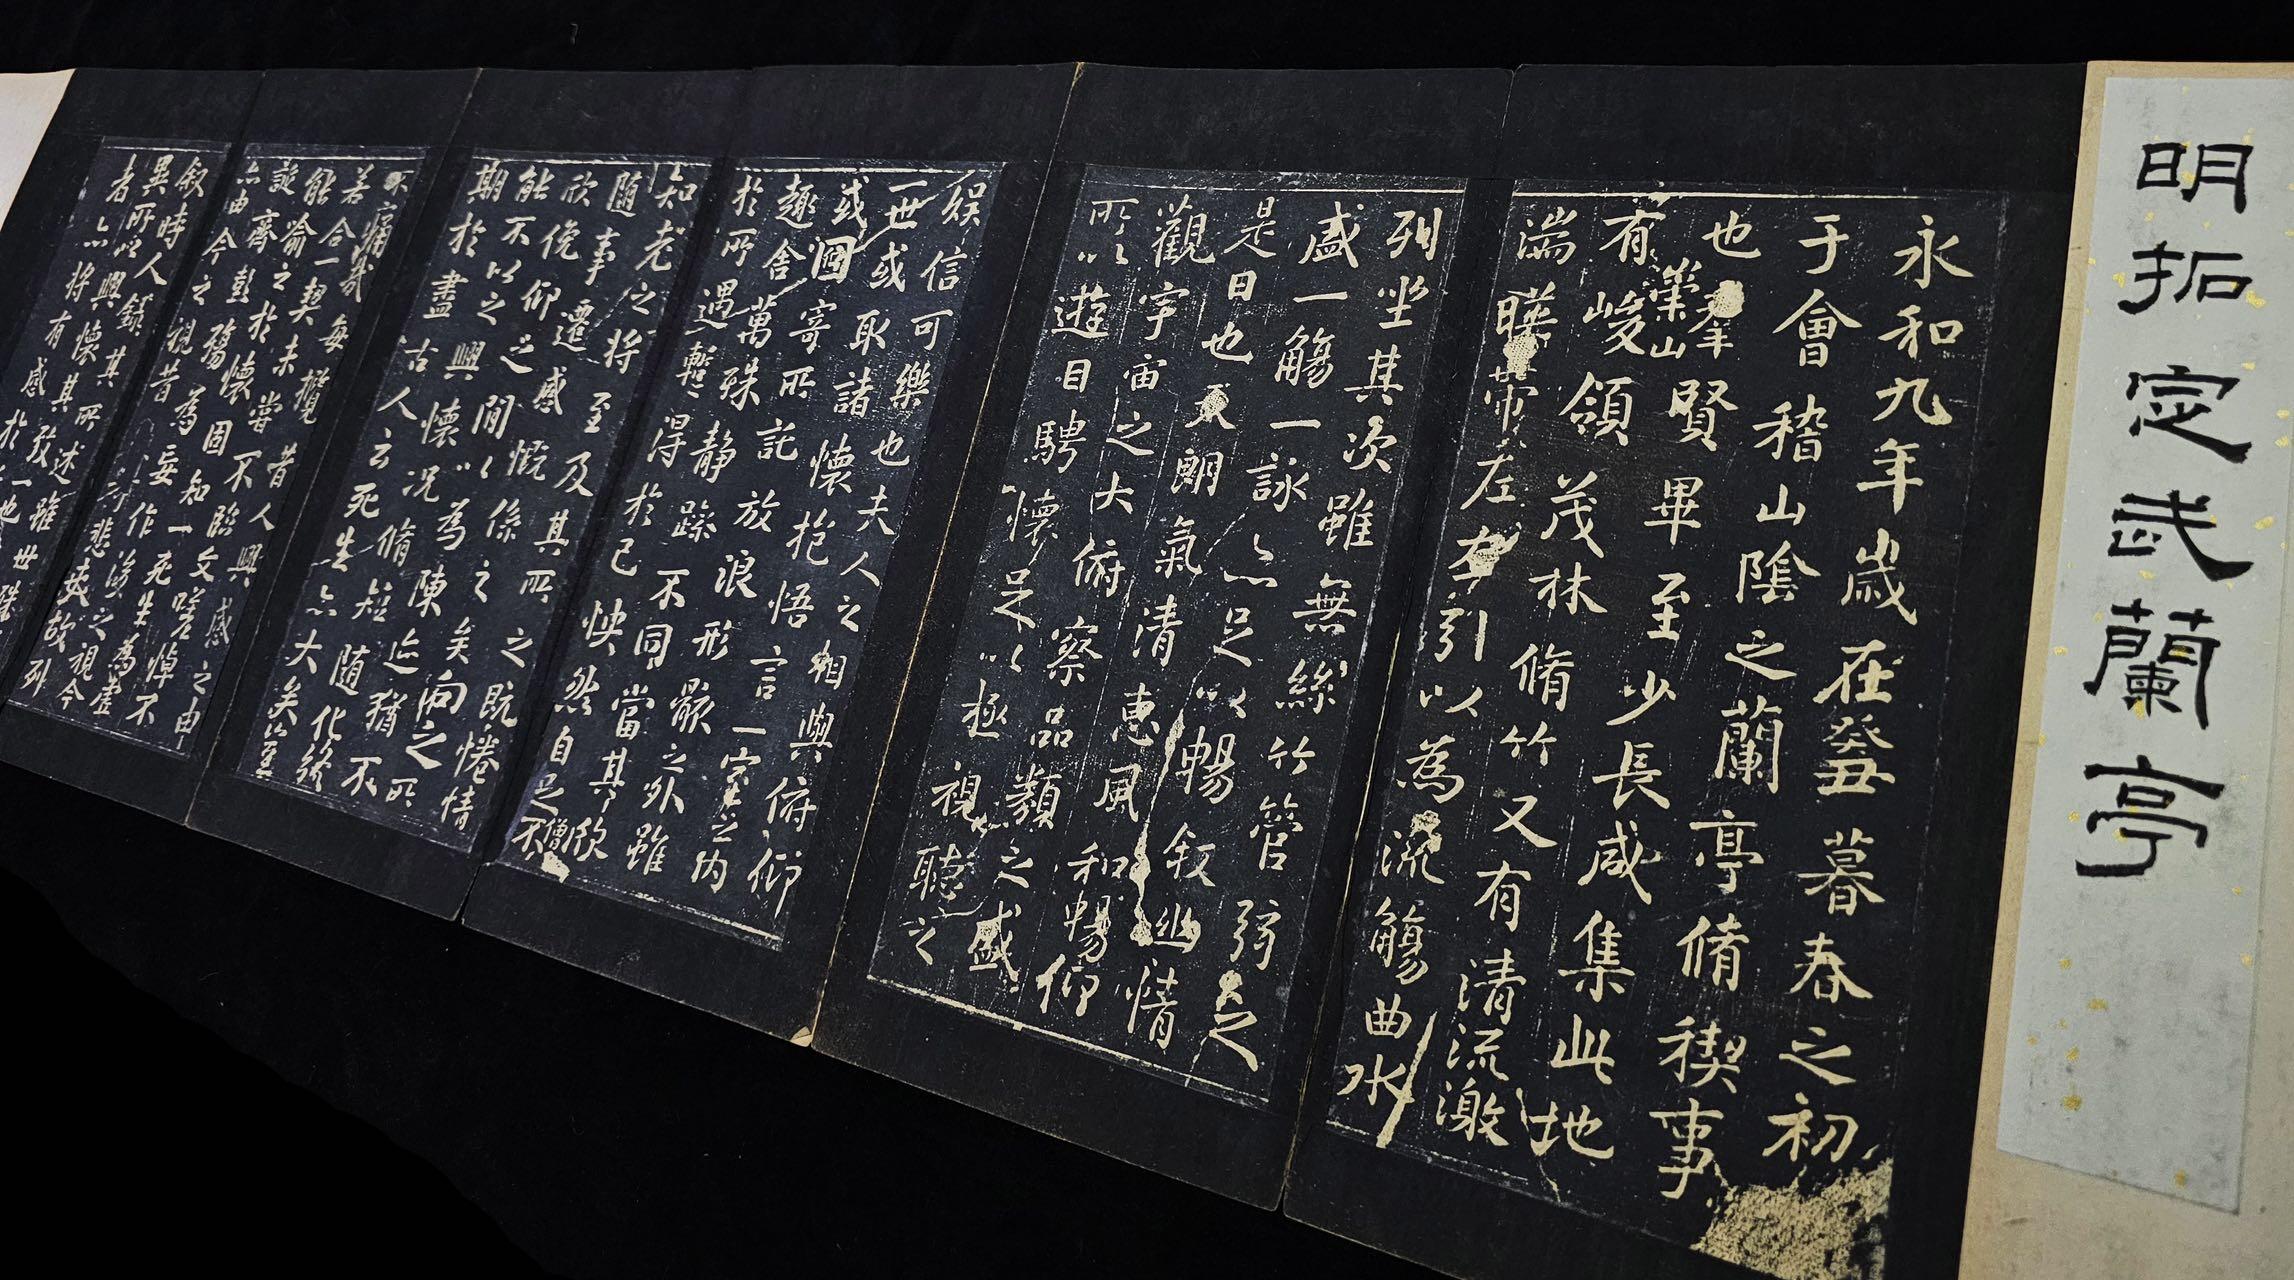 明拓定武蘭亭
永和九年歲在癸丑暮春之初
于會稽山陰之蘭亭脩稧事
也羣賢畢至少長咸集此地
有崇山峻領茂林脩竹又有清流激
湍暎帶左右引以為流觴曲水
列坐其次雖無絲竹管弦之
盛一觴一詠亦足以暢叙幽情
是日也天朗氣清惠風和暢仰
觀宇宙之大俯察品類之盛
所以遊目騁懷足以極視聽之
娛信可樂也夫人之相與俯仰
一世或取諸懷抱悟言一室之內
或因寄所託放浪形骸之外雖
趣舍萬殊靜躁不同當其欣
於所遇暫得於己怏然自足不
知老之將至及其所之既惓情
隨事遷感慨係之矣向之所
欣俛仰之間以為陳迹猶不
能不以之興懷況脩短隨化終
期於盡古人云死生亦大矣豈
不痛哉每攬昔人興感之由
若合一契未嘗不臨文嗟悼不
能喻之於懷固知一死生為虛
誕齊彭殤為妄作後之視今
亦由今之視昔悲夫故列
叙時人錄其所述雖世殊
異所以興懷其致一也
者亦將有感於